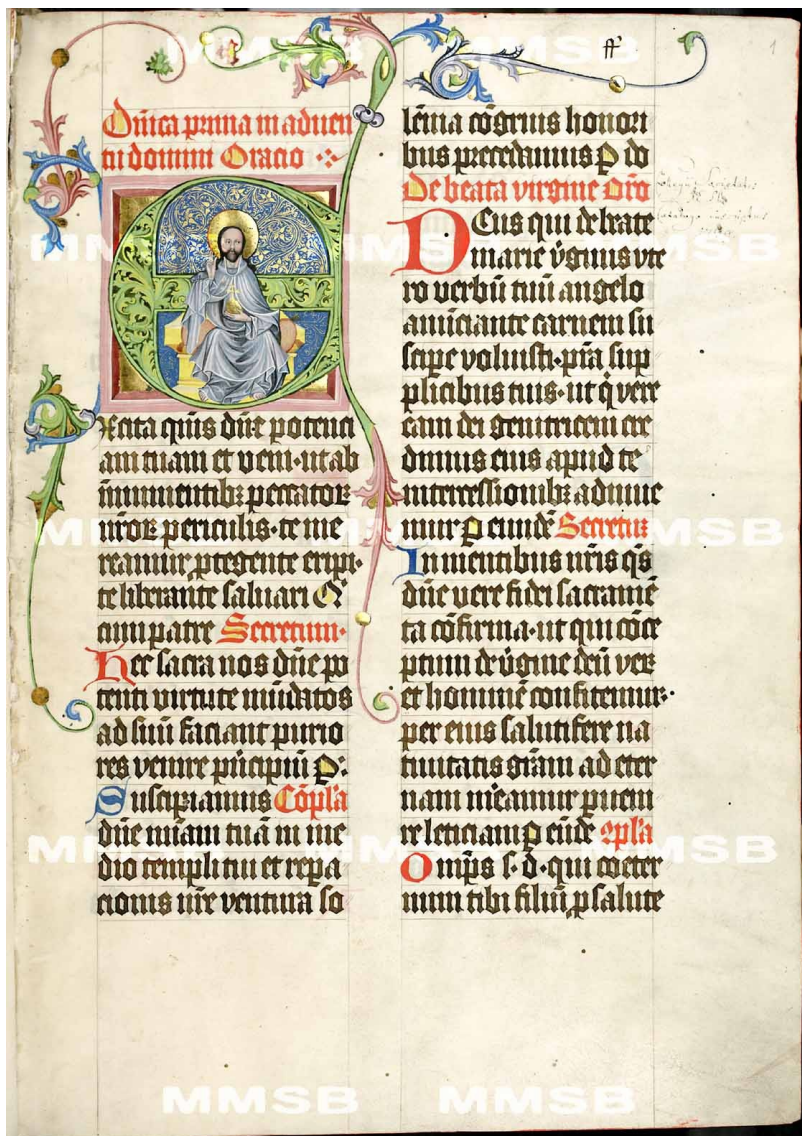 Dn̄ica prima in aduen
tu domini Oracio
Excita quīs dn̄e potenci
am tuam et veni· ut ab
īminentibꝫ peccatoꝝ
nr̄oꝝ periculis· te me
reamur ꝓtegente eripi·
te liberante saluari Q
cum patre Secretum·
Hec sacra nos dn̄e po
tenti virtute mūdatos
ad suū faciant purio
res venire p̄ncipiū P:
Suscipiamus Cōpl'a
dn̄e mīam tuā in me
dio templi tui et repa
cionis nr̄e ventura so
lēnia cōgruis honori
bus precedamus P do
De beata virgine Oro
Deus qui de beate
marie v̄ginis vte
ro verbū tuū angelo
anūciante carnem su
scipe voluisti· pr̄a sup
plicibus tuis· ut q̄ vere
eam dei genitricem cre
dimus eius apud te
intercessionibꝫ adiuue
mur P eundē Secretū
In mentibus nr̄is qs̄
dn̄e vere fidei sacramē
ta cōfirma· ut qui cōce
ptum de v̄gine deū veꝝ
et hominē confitemur·
per eius salutifere na
tiuitatis grām ad eter
nam mēamur puem
re leticiam P eūdē 9pl'a
Omp̄s s· d· qui coeter
num tibi filiū ꝓ salute
ff'
1
MMSB